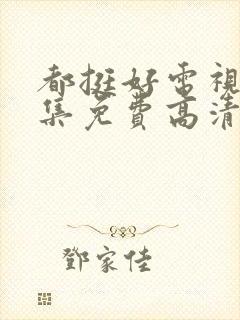 都挺好電視
集免費高清
鄧家佳